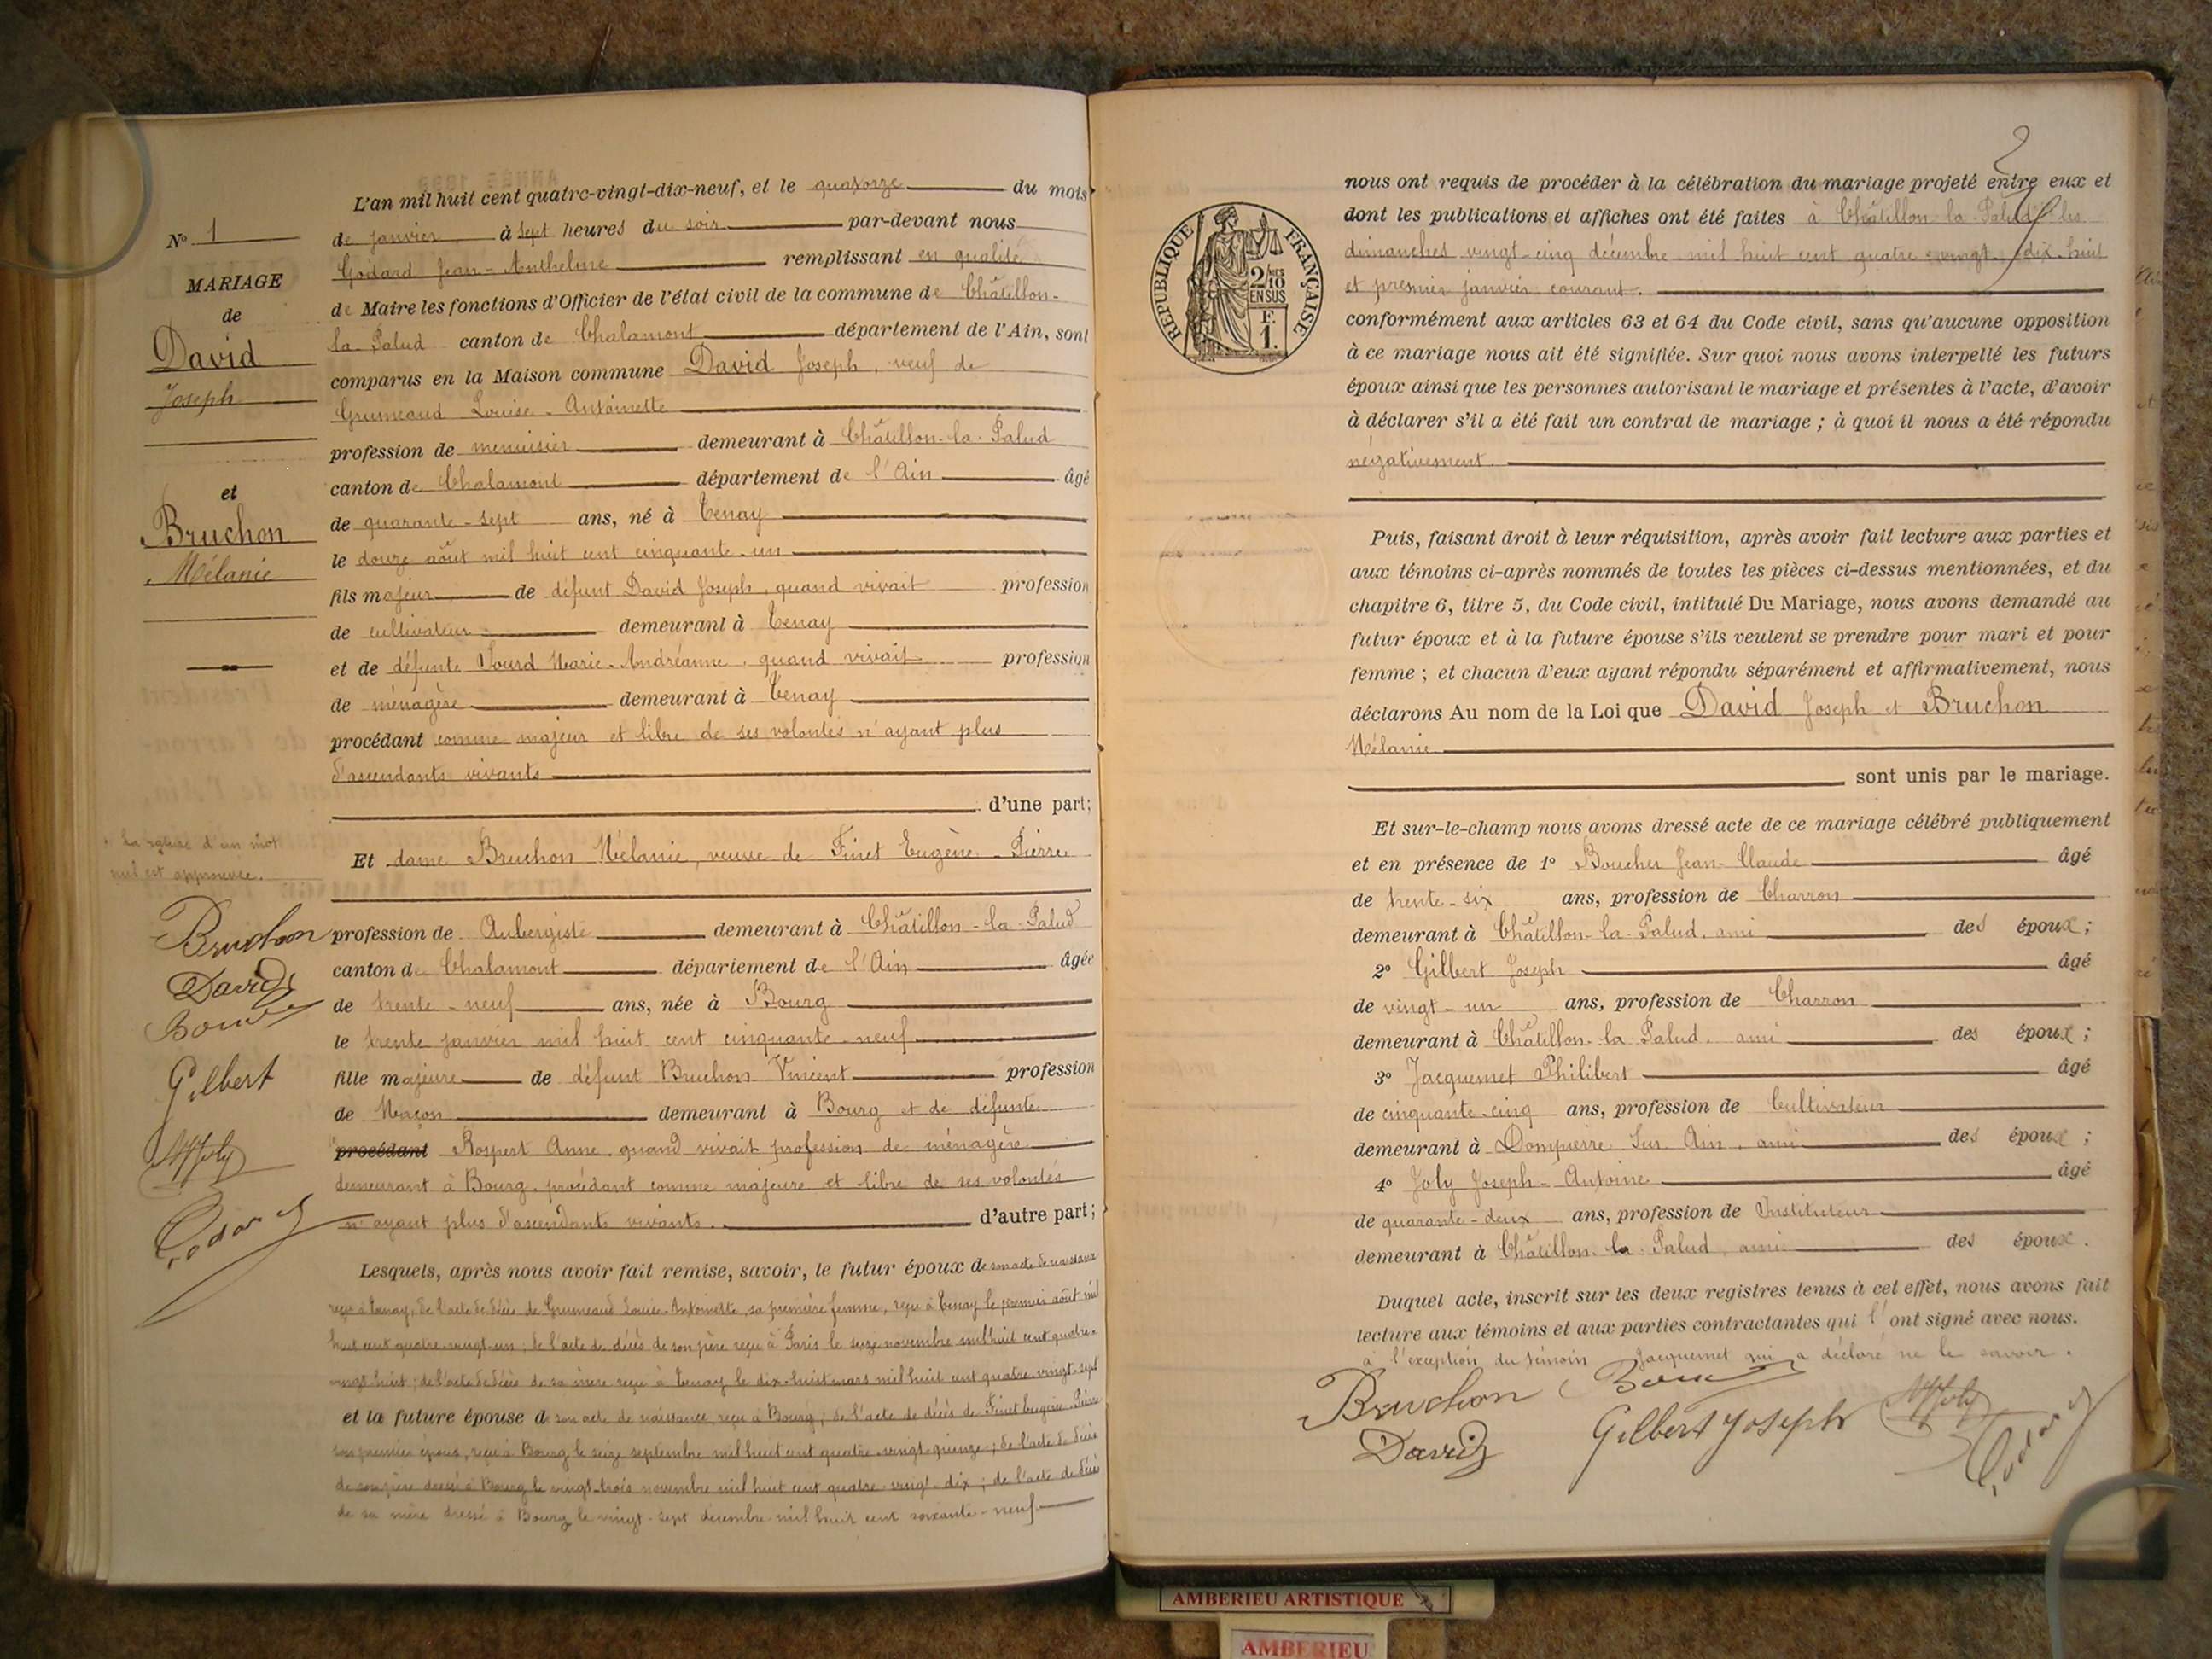 L'an mil huit cent quatre-vingt-dix-neuf, et le quatorze du mois
de janvier à sept heures du soir par-devant nous
Godard Jean-Anthelme remplissant en qualité
de Maire les fonctions d'Officier de l'état civil de la commune de Châtillon-
la Palud canton de Chalamont département de l'Ain, sont
comparus en la Maison commune David Joseph, veuf de
Grumeaud Louise-Antoinette
profession de menuisier demeurant à Châtillon-la-Palud
canton de Chalamont département de l'Ain âgé
de quarante-sept ans, né à Tenay
le douze août mil huit cent cinquante-un
fils majeur de défunt David Joseph, quand vivait profession
de cultivateur demeurant à Tenay
et de défunte Sourd Marie-Andréanne, quand vivait profession
de ménagère demeurant à Tenay
procédant comme majeur et libre de ses volontés n'ayant plus
d'ascendants vivants
d'une part;
Et dame Bruchon Mélanie, veuve de Finet Eugène-Pierre
profession de Aubergiste demeurant à Châtillon-la-Palud
canton de Chalamont département de l'Ain âgée
de trente-neuf ans, née à Bourg
le trente janvier mil huit cent cinquante-neuf
fille majeure de défunt Bruchon Vincent profession
de Maçon demeurant à Bourg et de défunte
procédant Rospert Anne quand vivait profession de ménagère
demeurant à Bourg, procédant comme majeure et libre de ses volontés
n'ayant plus d'ascendants vivants. d'autre part;
Lesquels, après nous avoir fait remise, savoir, le futur époux de son acte de naissance
reçu à Tenay, de l'acte de décès de Grumeaud Louise-Antoinette, sa première femme, reçu à Tenay le premier août mil
huit cent quatre-vingt-un; de l'acte de décès de son père reçu à Paris le seize novembre mil huit cent quatre-
vingt-huit; de l'acte de décès de sa mère reçu à Tenay le dix-huit mars mil huit cent quatre-vingt-sept
et la future épouse d son acte de naissance, reçu à Bourg; de l'acte de décès de Finet Eugène-Pierre
son premier époux, reçu à Bourg le seize septembre mil huit cent quatre-vingt-quinze; de l'acte de décès
de son père dressé à Bourg le vingt-trois novembre mil huit cent quatre-vingt-dix; de l'acte de décès
de sa mère dressé à Bourg le vingt-sept décembre mil huit cent soixante-neuf
N° 1
MARIAGE
de
David
Joseph
et
Bruchon
Mélanie
La rature d'un mot
nul est approuvée.
Bruchon
David
Gilbert
Joly
Godard
2
nous ont requis de procéder à la célébration du mariage projeté entre eux et
dont les publications et affiches ont été faites à Châtillon la Palud les
dimanches vingt-cinq décembre mil huit cent quatre-vingt-dix-huit
et premier janvier courant.
conformément aux articles 63 et 64 du Code civil, sans qu'aucune opposition
à ce mariage nous ait été signifiée. Sur quoi nous avons interpellé les futurs
époux ainsi que les personnes autorisant le mariage et présentes à l'acte, d'avoir
à déclarer s'il a été fait un contrat de mariage; à quoi il nous a été répondu
négativement.
Puis, faisant droit à leur réquisition, après avoir fait lecture aux parties et
aux témoins ci-après nommés de toutes les pièces ci-dessus mentionnées, et du
chapitre 6, titre 5, du Code civil, intitulé Du Mariage, nous avons demandé au
futur époux et à la future épouse s'ils veulent se prendre pour mari et pour
femme; et chacun d'eux ayant répondu séparément et affirmativement, nous
déclarons Au nom de la Loi que David Joseph et Bruchon
Mélanie
sont unis par le mariage.
Et sur-le-champ nous avons dressé acte de ce mariage célébré publiquement
et en présence de 1° Boucher Jean-Claude âgé
de trente-six ans, profession de Charron
demeurant à Châtillon-la-Palud, ami des époux;
2° Gilbert Joseph âgé
de vingt-un ans, profession de Charron
demeurant à Châtillon-la Palud, ami des époux;
3° Jacquemet Philibert âgé
de cinquante-cinq ans, profession de Cultivateur
demeurant à Dompierre Sur Ain, ami des époux;
4° Joly Joseph-Antoine âgé
de quarante-deux ans, profession de Instituteur
demeurant à Châtillon-la-Palud, ami des époux.
Duquel acte, inscrit sur les deux registres tenus à cet effet, nous avons fait
lecture aux témoins et aux parties contractantes qui l'ont signé avec nous.
à l'exception du témoin Jacquemet qui a déclaré ne le savoir.
Bruchon
David
Gilbert Joseph
Joly
Godard
RÉPUBLIQUE FRANÇAISE
2/10
EN SUS
F.
1.
AMBERIEU ARTISTIQUE
AMBERIEU